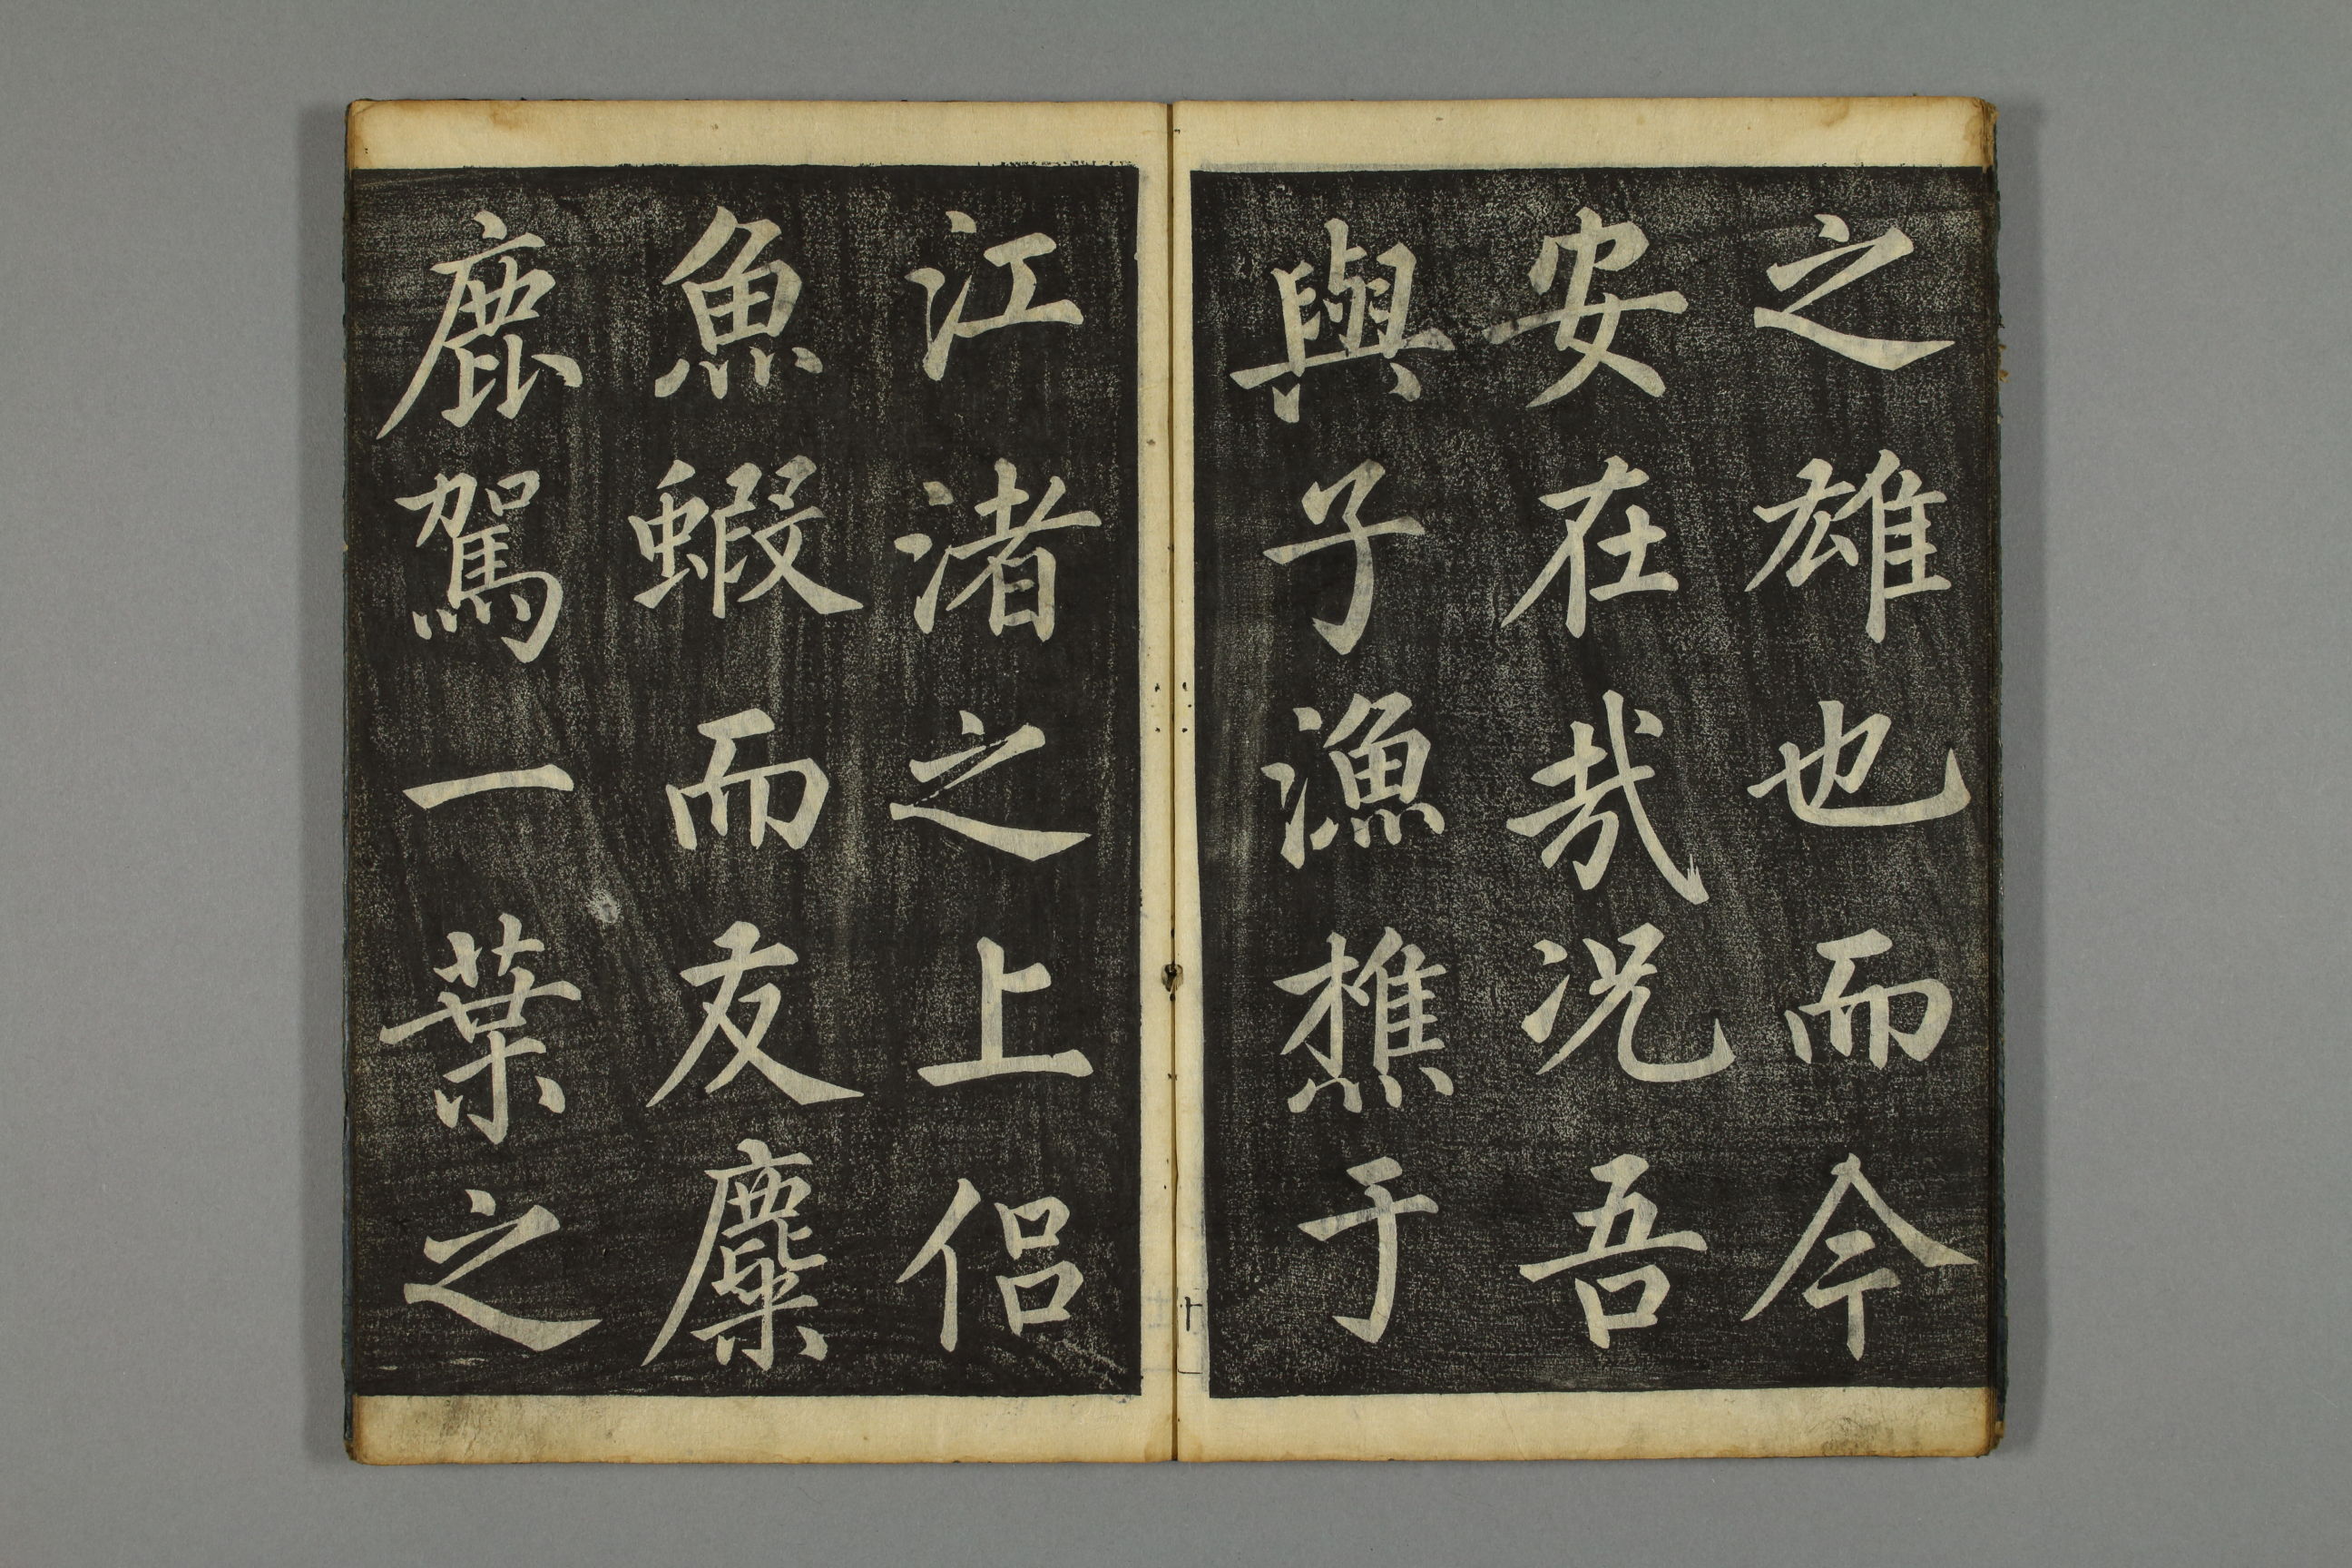 之雄也而今
安在哉况吾
與子漁樵于
江渚之上侣
魚蝦而友麋
鹿駕一葉之